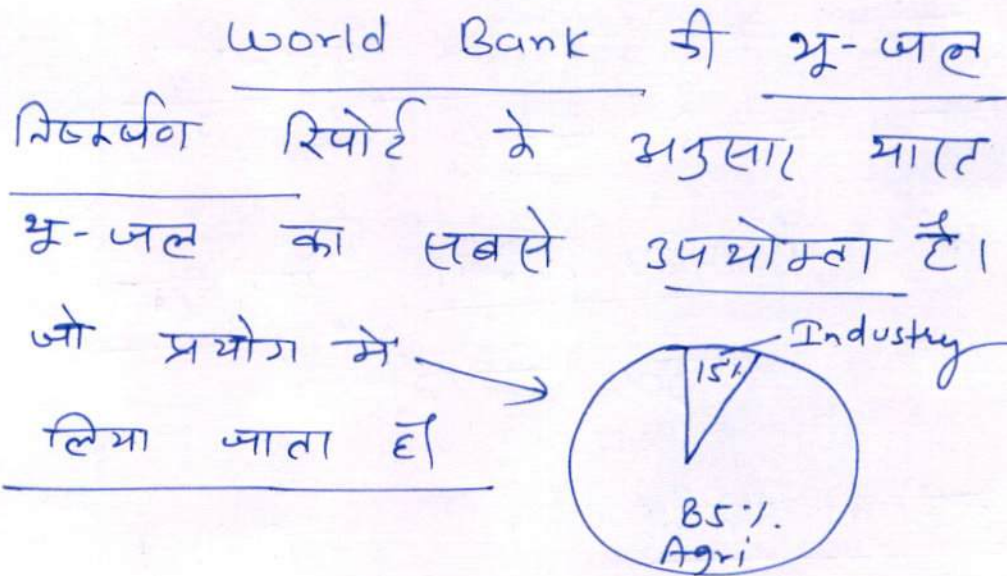 World Bank की भू-जल
निष्कर्षण रिपोर्ट के अनुसार भारत
भू-जल का सबसे उपयोक्ता है।
जो प्रयोग में
लिया जाता है।
Industry
15%
85%.
Agri